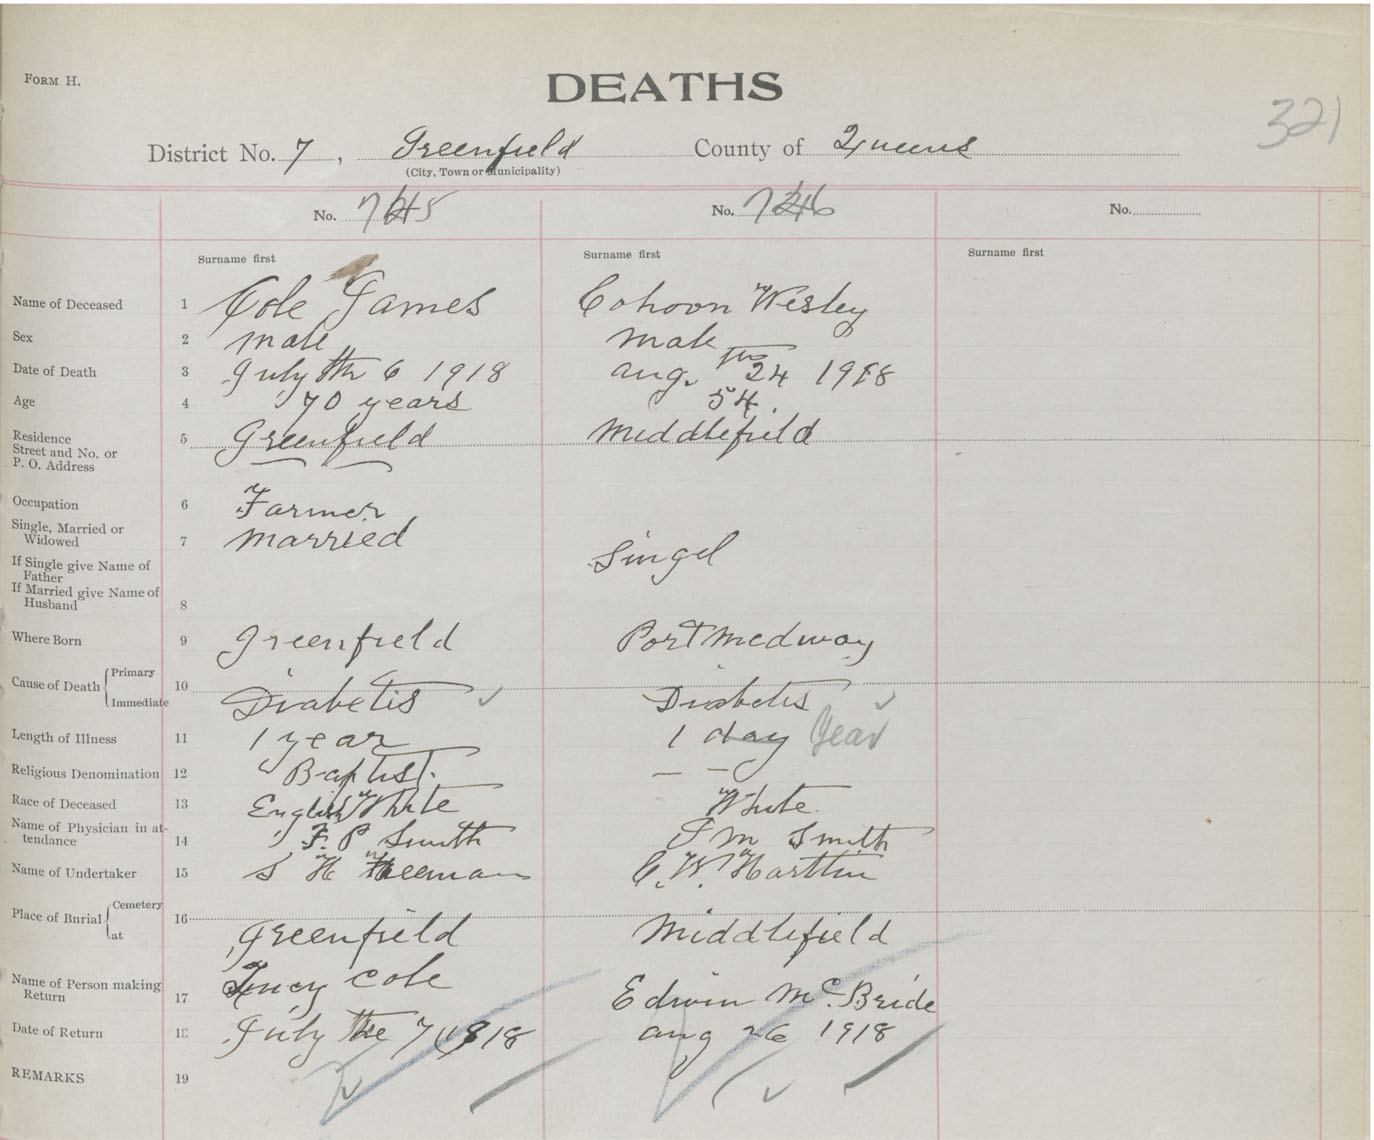 FORM H.
DEATHS
321
District No. 7, Greenfield County of Queens
(City, Town or Municipality)
No. 745 No. 746 No.
Surname first Surname first Surname first
Name of Deceased 1 Cole James Cohoon Wesley
Sex 2 male male
Date of Death 3 July th 6 1918 aug. 24th 1918
Age 4 70 years 54
Residence
Street and No. or
P. O. Address 5 Greenfield Middlefield
Occupation 6 Farmer
Single, Married or
Widowed 7 married Singel
If Single give Name of
Father
If Married give Name of
Husband 8
Where Born 9 Greenfield Port Medway
Cause of Death { Primary
Immediate 10 Diabetis ✓ Diabetis ✓
Length of Illness 11 1 year 1 day Year
Religious Denomination 12 Baptist. — —
Race of Deceased 13 English White White
Name of Physician in at-
tendance 14 F. P Smith Smith
Name of Undertaker 15 S H Freeman C. W.
Place of Burial { Cemetery
at 16 Greenfield Middlefield
Name of Person making
Return 17 Lucy Cole Edwin Mc Bride
Date of Return 18 July the 7 1918 aug 26 1918
REMARKS 19